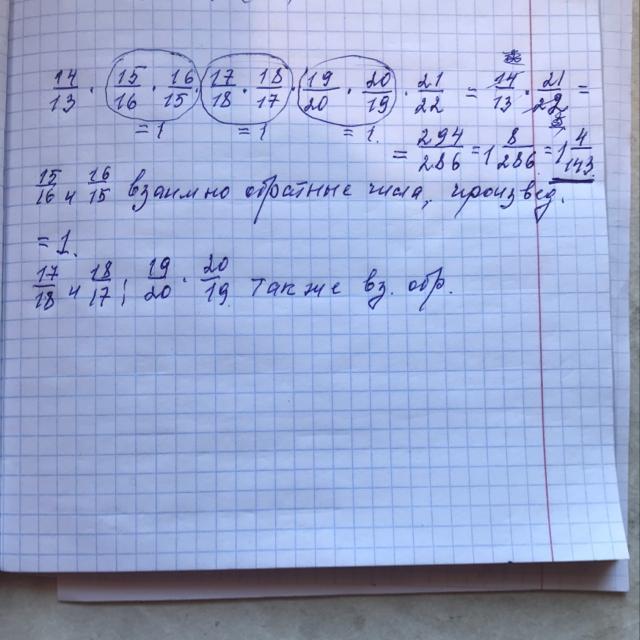 14/13 · 15/16 · 16/15 · 17/18 · 18/17 · 19/20 · 20/19 · 21/22 = 14/13 · 21/22 =
=1 =1 =1.
= 294/286 = 1 8/286 = 1 4/143
15/16 и 16/15 взаимно обратные числа, произвед.
=1.
17/18 и 18/17; 19/20 · 20/19 также вз. обр.